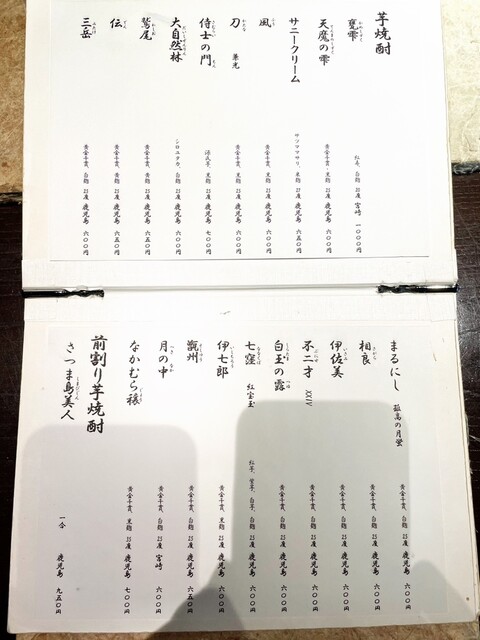 芋焼酎
甕雫 紅寿、白麹 20度 宮崎 一〇〇〇円
天魔の雫 黄金千貫・黒麹 25度 鹿児島 六〇〇円
サニークリーム サツママサリ、米麹 27度 鹿児島 六五〇円
風 黄金千貫、黒麹 25度 鹿児島 六〇〇円
刀 兼光 黄金千貫、黒麹 25度 鹿児島 六〇〇円
侍士の門 源氏芋、黒麹 25度 鹿児島 七〇〇円
大自然林 シロユタカ、白麹 25度 鹿児島 六〇〇円
鷲尾 黄金千貫、黄麹 25度 鹿児島 六五〇円
伝 黄金千貫、黄麹 25度 鹿児島 六五〇円
三岳 黄金千貫、白麹 25度 鹿児島 六〇〇円
まるにし 孤高の月蛍 黄金千貫、白麹 25度 鹿児島 六〇〇円
相良 黄金千貫、白麹 25度 鹿児島 六〇〇円
伊佐美 黄金千貫、黒麹 25度 鹿児島 六〇〇円
不二才 XXIV 黄金千貫、白麹 鹿児島 六〇〇円
白玉の露 黄金千貫、白麹 25度 鹿児島 六〇〇円
七窪 紅宝玉 紅芋、紫芋、白芋、白麹 25度 鹿児島 六〇〇円
伊七郎 黄金千貫、黒麹 25度 鹿児島 六〇〇円
甑州 黄金千貫、白麹 25度 鹿児島 六五〇円
月の中 黄金千貫、白麹 25度 宮崎 六〇〇円
なかむら穣 黄金千貫、黒麹 25度 鹿児島 七〇〇円
前割り芋焼酎
さつま島美人 一合 鹿児島 九五〇円